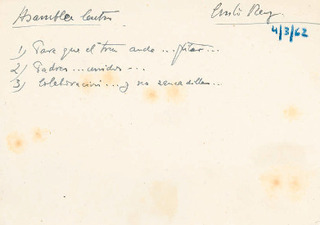 Asamblea Centro
Cristo Rey
4/3/62
1) Para que el tren ande ... pitar ...
2) Padres ... unidos ..
3) Colaboración ... y no zancadillas ..